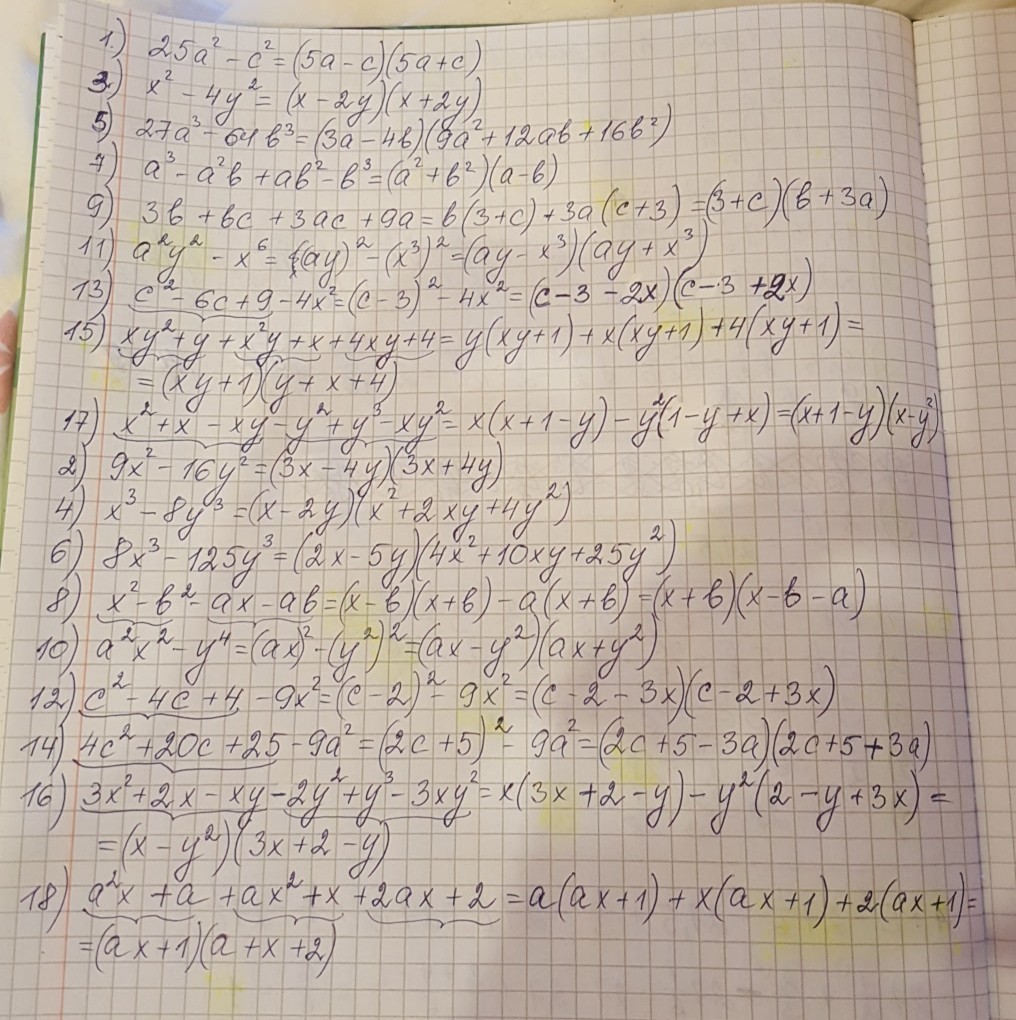 1.) 25a² - c² = (5a - c)(5a + c)
3) x² - 4y² = (x - 2y)(x + 2y)
5) 27a³ - 64в³ = (3a - 4в)(9a² + 12aв + 16в²)
7) a³ - a²в + aв² - в³ = (a² + в²)(a - в)
9) 3в + вc + 3ac + 9a = в(3 + c) + 3a(c + 3) = (3 + c)(в + 3a)
11) a²y² - x⁶ = (ay)² - (x³)² = (ay - x³)(ay + x³)
13) c² - 6c + 9 - 4x² = (c - 3)² - 4x² = (c - 3 - 2x)(c - 3 + 2x)
15) xy² + y + x²y + x + 4xy + 4 = y(xy + 1) + x(xy + 1) + 4(xy + 1) =
= (xy + 1)(y + x + 4)
17) x² + x - xy - y² + y³ - xy² = x(x + 1 - y) - y²(1 - y + x) = (x + 1 - y)(x - y²)
2) 9x² - 16y² = (3x - 4y)(3x + 4y)
4) x³ - 8y³ = (x - 2y)(x² + 2xy + 4y²)
6) 8x³ - 125y³ = (2x - 5y)(4x² + 10xy + 25y²)
8) x² - в² - ax - aв = (x - в)(x + в) - a(x + в) = (x + в)(x - в - a)
10) a²x² - y⁴ = (ax)² - (y²)² = (ax - y²)(ax + y²)
12) c² - 4c + 4 - 9x² = (c - 2)² - 9x² = (c - 2 - 3x)(c - 2 + 3x)
14) 4c² + 20c + 25 - 9a² = (2c + 5)² - 9a² = (2c + 5 - 3a)(2c + 5 + 3a)
16) 3x² + 2x - xy - 2y² + y³ - 3xy² = x(3x + 2 - y) - y²(2 - y + 3x) =
= (x - y²)(3x + 2 - y)
18) a²x + a + ax² + x + 2ax + 2 = a(ax + 1) + x(ax + 1) + 2(ax + 1) =
= (ax + 1)(a + x + 2)